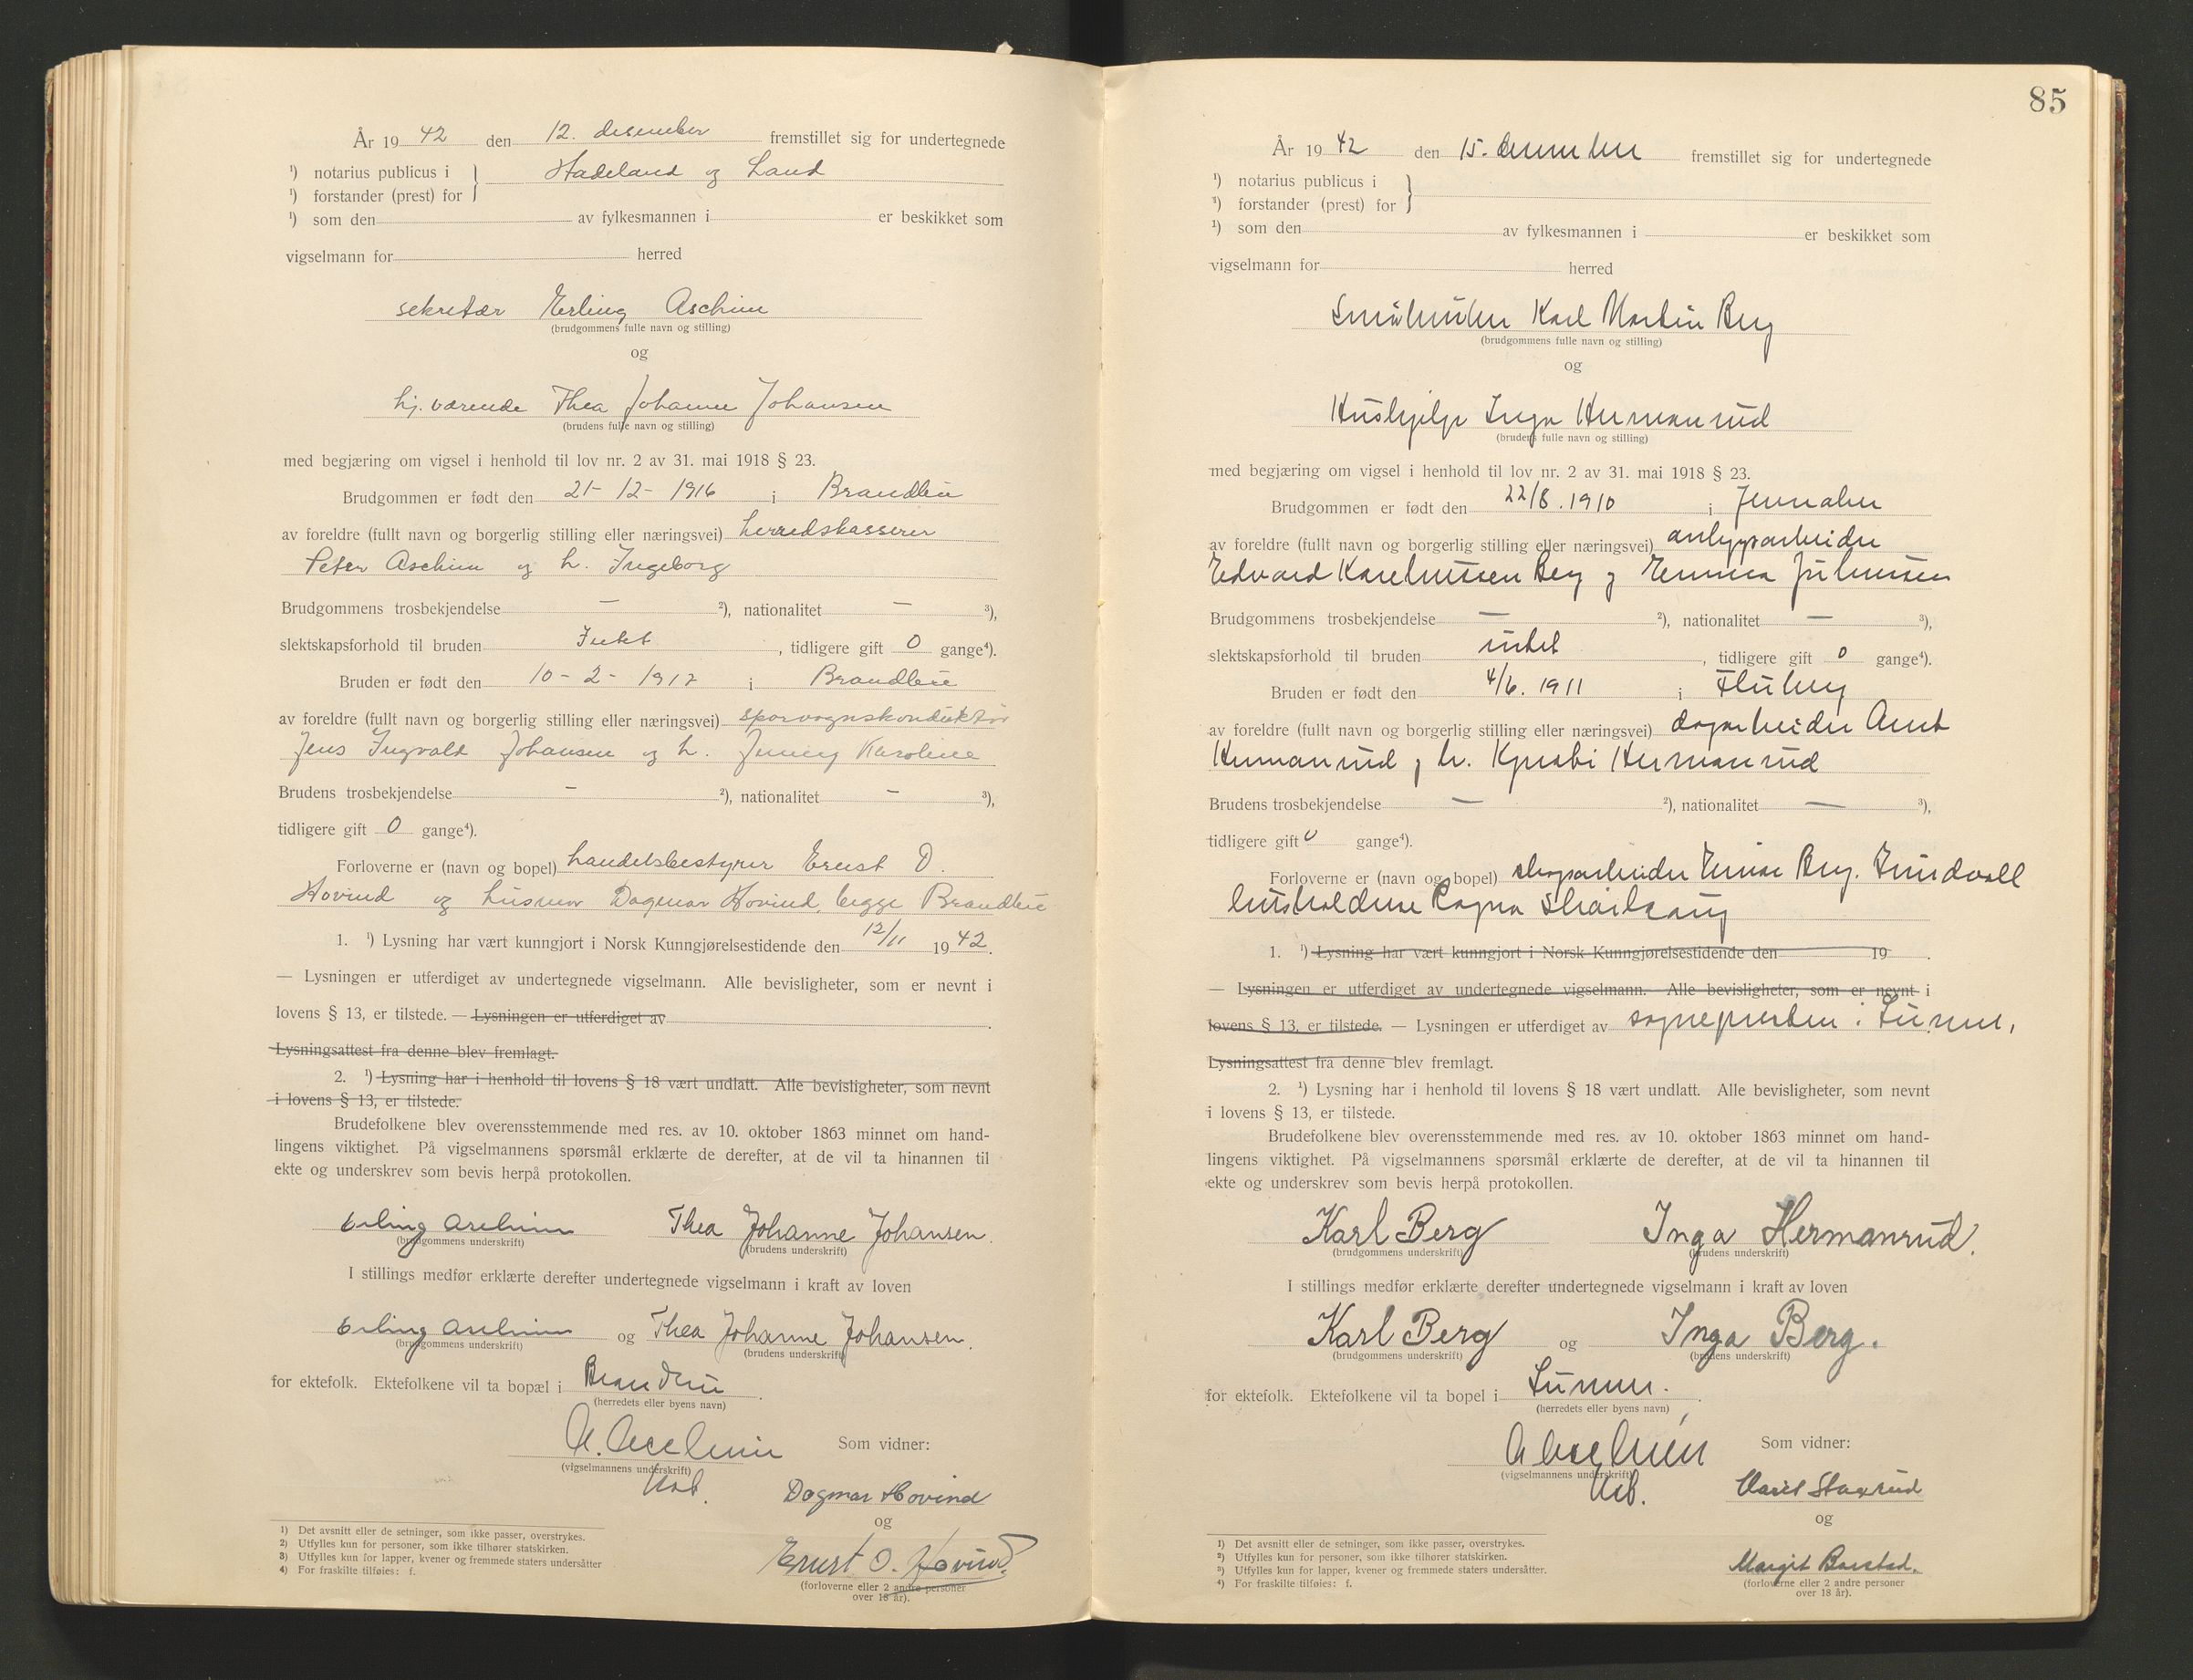 År 19 42 den 12. desember fremstillet sig for undertegnede
¹) notarius publicus i } Hadeland og Land
¹) forstander (prest) for
¹) som den av fylkesmannen i er beskikket som
vigselmann for herred
sekretær Erling Aschim
(brudgommens fulle navn og stilling)
og
hj. værende Thea Johanne Johansen
(brudens fulle navn og stilling)
med begjæring om vigsel i henhold til lov nr. 2 av 31. mai 1918 § 23.
Brudgommen er født den 21-12-1916 i Brandbu
av foreldre (fullt navn og borgerlig stilling eller næringsvei) herredskasserer
Peter Aschim og h. Ingeborg
Brudgommens trosbekjendelse — ²), nationalitet — ³),
slektskapsforhold til bruden Intet, tidligere gift 0 gange⁴).
Bruden er født den 10-2-1917 i Brandbu
av foreldre (fullt navn og borgerlig stilling eller næringsvei) sporvognskonduktør
Jens Ingvald Johansen og h. Jenny Karoline
Brudens trosbekjendelse - ²), nationalitet - ³),
tidligere gift 0 gange⁴).
Forloverne er (navn og bopel) handelsbestyrer Ernst O.
Hovind og husmor Dagmar Hovind, begge Brandbu
1. ¹) Lysning har vært kunngjort i Norsk Kunngjørelsestidende den 12/11 19 42.
— Lysningen er utferdiget av undertegnede vigselmann. Alle bevisligheter, som er nevnt i
lovens § 13, er tilstede. — Lysningen er utferdiget av
Lysningsattest fra denne blev fremlagt.
2. ¹) Lysning har i henhold til lovens § 18 vært undlatt. Alle bevisligheter, som nevnt
i lovens § 13, er tilstede.
Brudefolkene blev overensstemmende med res. av 10. oktober 1863 minnet om hand-
lingens viktighet. På vigselmannens spørsmål erklærte de derefter, at de vil ta hinannen til
ekte og underskrev som bevis herpå protokollen.
Erling Aschim Thea Johanne Johansen.
(brudgommens underskrift) (brudens underskrift)
I stillings medfør erklærte derefter undertegnede vigselmann i kraft av loven
Erling Aschim og Thea Johanne Johansen.
(brudgommens underskrift) (brudens underskrift)
for ektefolk. Ektefolkene vil ta bopæl i Brandbu.
(herredets eller byens navn)
Aschim Som vidner:
(vigselmannens underskrift)
Dagmar Hovind
og
Ernst O. Hovind.
(forloverne eller 2 andre personer
over 18 år).
1) Det avsnitt eller de setninger, som ikke passer, overstrykes.
2) Utfylles kun for personer, som ikke tilhører statskirken.
3) Utfylles kun for lapper, kvener og fremmede staters undersåtter
4) For fraskilte tilføies: f.
85
År 19 42 den 15. desember fremstillet sig for undertegnede
¹) notarius publicus i }
¹) forstander (prest) for
¹) som den av fylkesmannen i er beskikket som
vigselmann for herred
Småbruker Karl Martin Berg
(brudgommens fulle navn og stilling)
og
Hushjelp Inga Hermanrud
(brudens fulle navn og stilling)
med begjæring om vigsel i henhold til lov nr. 2 av 31. mai 1918 § 23.
Brudgommen er født den 22/8. 1910 i Jevnaker
av foreldre (fullt navn og borgerlig stilling eller næringsvei) anleggsarbeider
Edvard Kareliussen Berg og Emma Juliussen
Brudgommens trosbekjendelse — ²), nationalitet — ³),
slektskapsforhold til bruden intet, tidligere gift 0 gange⁴).
Bruden er født den 4/6. 1911 i Fluberg
av foreldre (fullt navn og borgerlig stilling eller næringsvei) dagarbeider Arnt
Hermanrud og h. Hermanrud
Brudens trosbekjendelse — ²), nationalitet — ³),
tidligere gift 0 gange⁴).
Forloverne er (navn og bopel) skogsarbeider Einar Berg.
husholderske Ragna
1. ¹) Lysning har vært kunngjort i Norsk Kunngjørelsestidende den 19 .
— Lysningen er utferdiget av undertegnede vigselmann. Alle bevisligheter, som er nevnt i
lovens § 13, er tilstede. — Lysningen er utferdiget av sognepresten i Lunner,
Lysningsattest fra denne blev fremlagt.
2. ¹) Lysning har i henhold til lovens § 18 vært undlatt. Alle bevisligheter, som nevnt
i lovens § 13, er tilstede.
Brudefolkene blev overensstemmende med res. av 10. oktober 1863 minnet om hand-
lingens viktighet. På vigselmannens spørsmål erklærte de derefter, at de vil ta hinannen til
ekte og underskrev som bevis herpå protokollen.
Karl Berg Inga Hermanrud.
(brudgommens underskrift) (brudens underskrift)
I stillings medfør erklærte derefter undertegnede vigselmann i kraft av loven
Karl Berg og Inga Berg.
(brudgommens underskrift) (brudens underskrift)
for ektefolk. Ektefolkene vil ta bopel i Lunner.
(herredets eller byens navn)
Aschim Som vidner:
(vigselmannens underskrift)
Marit Staxrud
og
Margit Barstad.
(forloverne eller 2 andre personer
over 18 år).
1) Det avsnitt eller de setninger, som ikke passer, overstrykes.
2) Utfylles kun for personer, som ikke tilhører statskirken.
3) Utfylles kun for lapper, kvener og fremmede staters undersåtter.
4) For fraskilte tilføies: f.